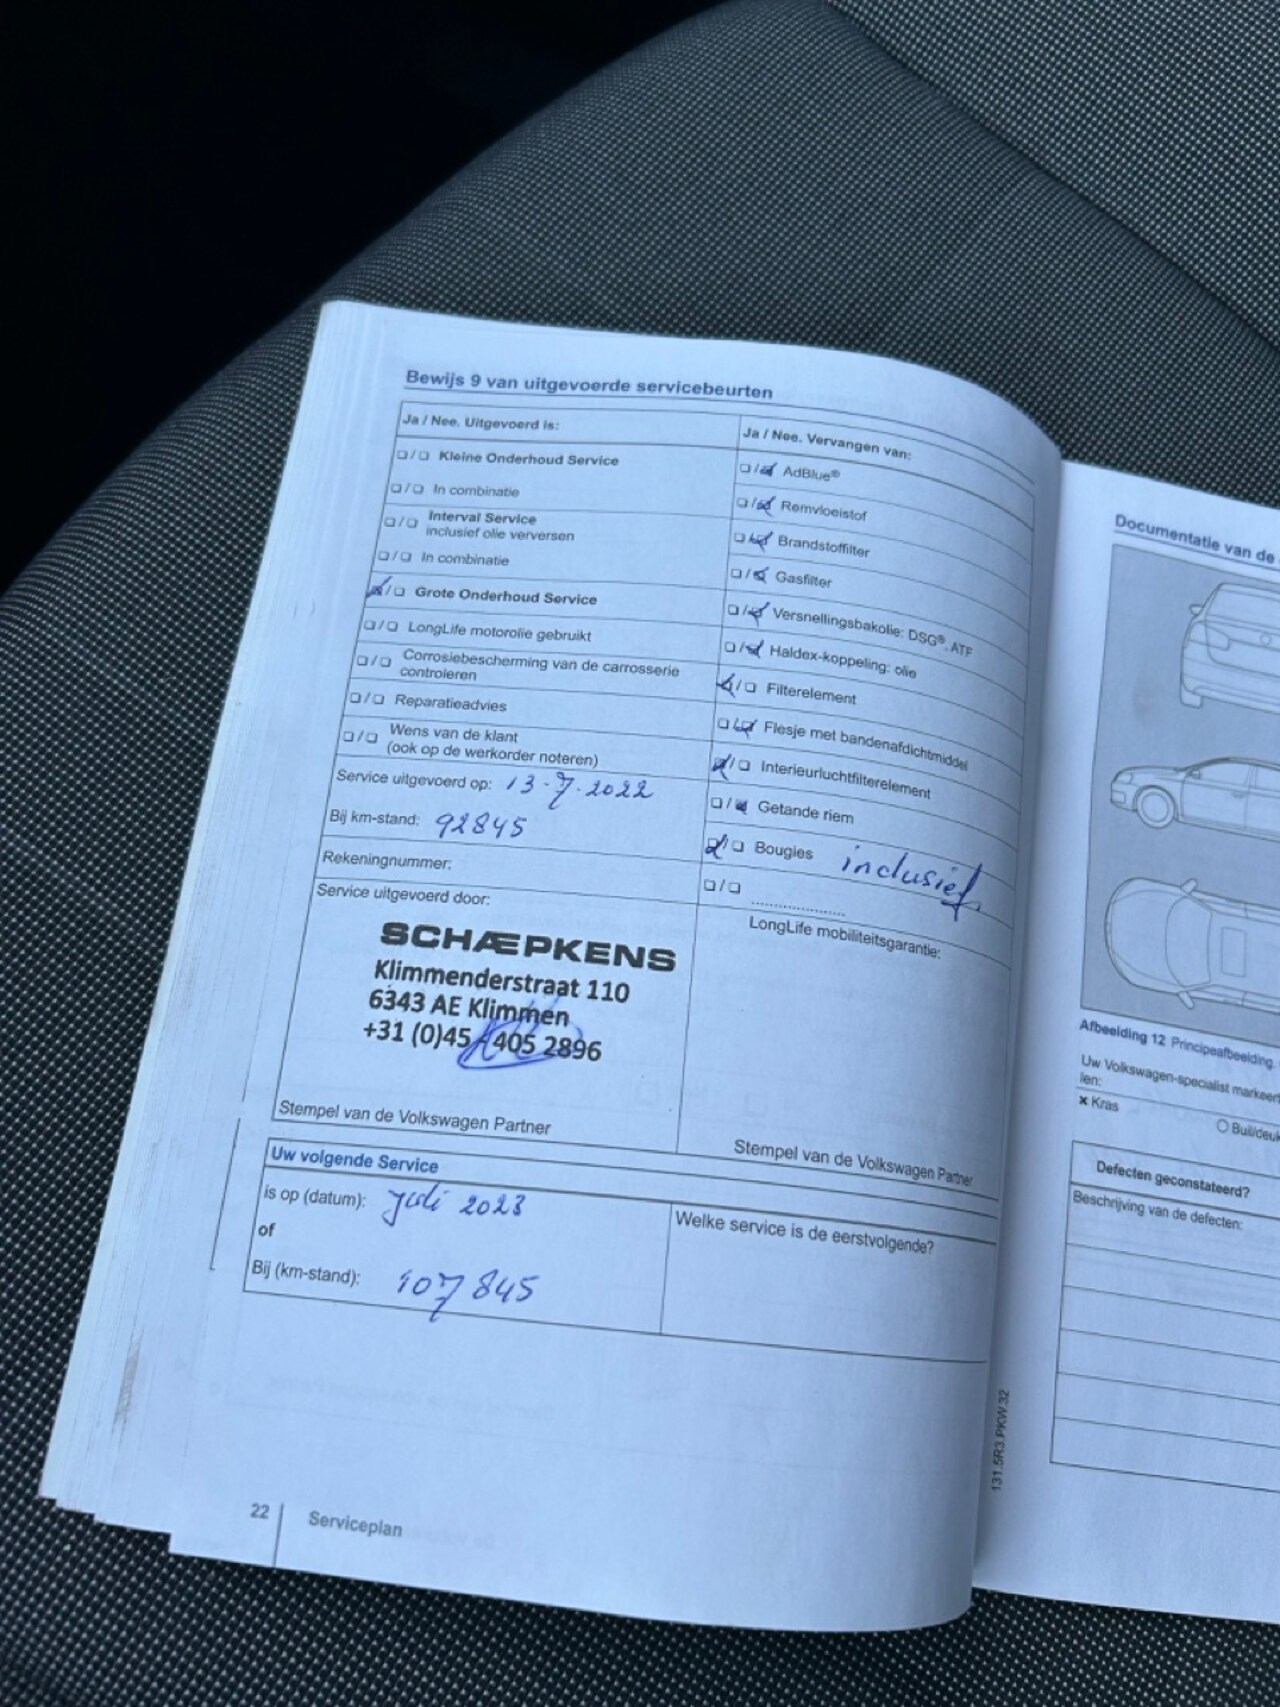 Bewijs 9 van uitgevoerde servicebeurten
Ja / Nee. Uitgevoerd is:
❑/❑ Kleine Onderhoud Service
❑/❑ In combinatie
❑/❑ Interval Service
inclusief olie verversen
❑/❑ In combinatie
❑/❑ Grote Onderhoud Service
❑/❑ LongLife motorolie gebruikt
❑/❑ Corrosiebescherming van de carrosserie
controleren
❑/❑ Reparatieadvies
❑/❑ Wens van de klant
(ook op de werkorder noteren)
Service uitgevoerd op: 13-7-2022
Bij km-stand: 92845
Rekeningnummer:
Service uitgevoerd door:
SCHÆPKENS
Klimmenderstraat 110
6343 AE Klimmen
+31 (0)45 - 405 2896
Stempel van de Volkswagen Partner
Ja / Nee. Vervangen van:
❑/❑ AdBlue®
❑/❑ Remvloeistof
❑/❑ Brandstoffilter
❑/❑ Gasfilter
❑/❑ Versnellingsbakolie: DSG®, ATF
❑/❑ Haldex-koppeling: olie
❑/❑ Filterelement
❑/❑ Flesje met bandenafdichtmiddel
❑/❑ Interieurluchtfilterelement
❑/❑ Getande riem
❑/❑ Bougies inclusief
❑/❑ ....................
LongLife mobiliteitsgarantie:
Stempel van de Volkswagen Partner
Uw volgende Service
is op (datum): juli 2023
of
Bij (km-stand): 107845
Welke service is de eerstvolgende?
131.5R3.PKW.32
22 Serviceplan
Documentatie van de
Afbeelding 12 Principeafbeelding.
Uw Volkswagen-specialist markeert
len:
× Kras
O Buil/deuk
Defecten geconstateerd?
Beschrijving van de defecten: